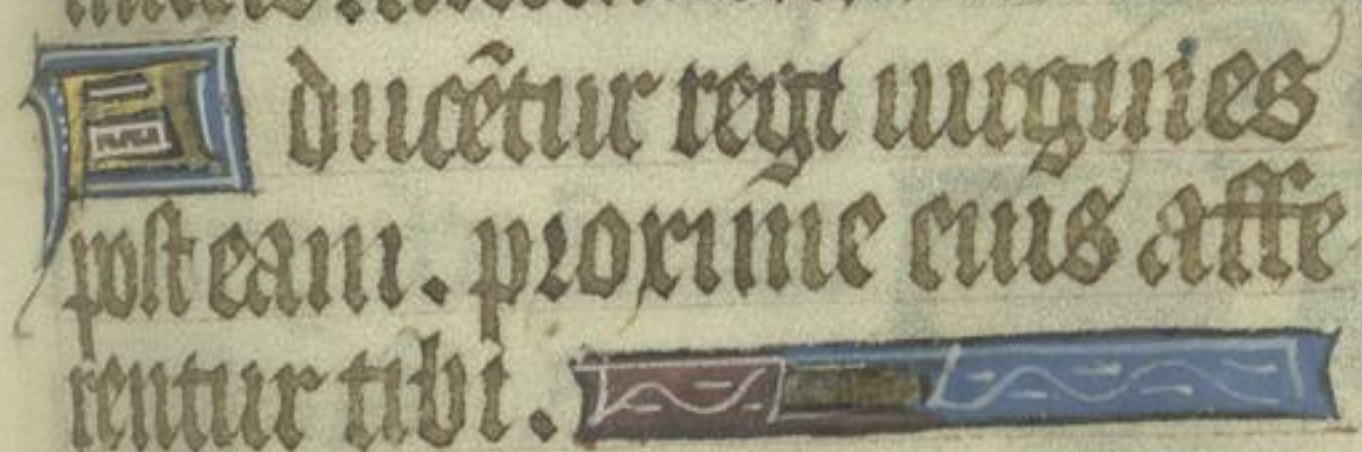 Aducẽtur regi uirgines
post eam. proxime eius affe
rentur tibi.